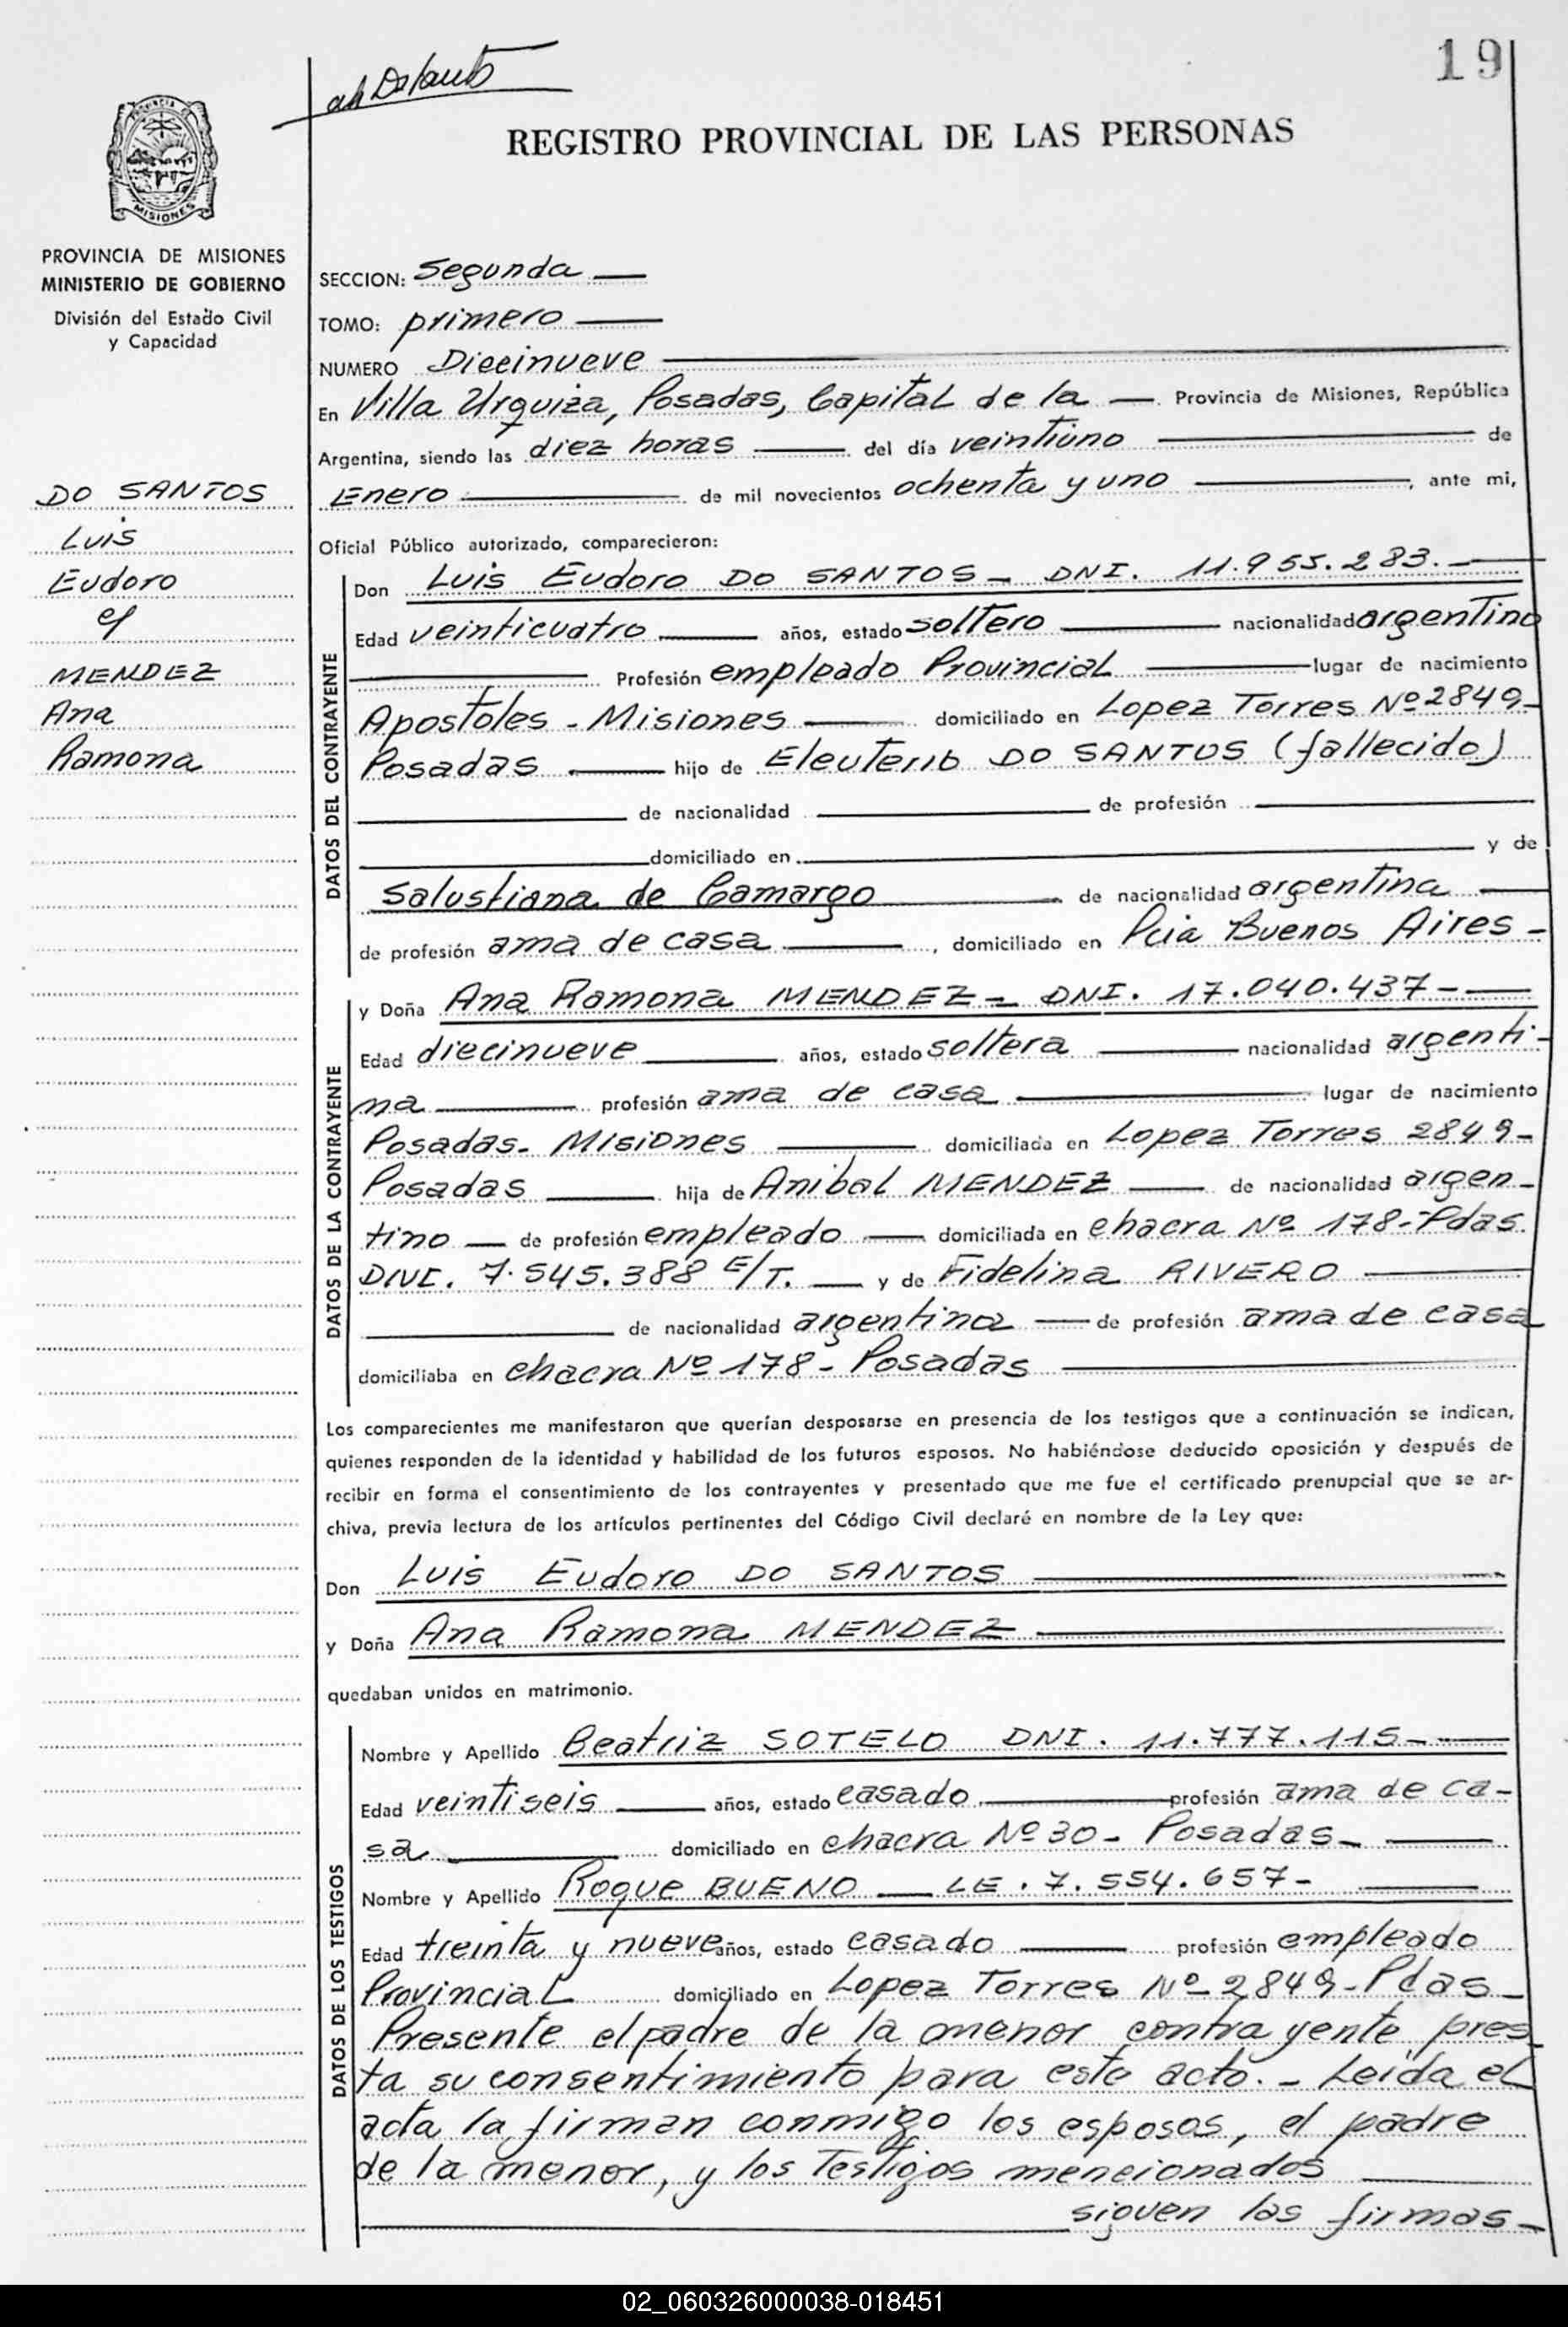 19
REGISTRO PROVINCIAL DE LAS PERSONAS
PROVINCIA DE
MISIONES
PROVINCIA DE MISIONES
MINISTERIO DE GOBIERNO
División del Estado Civil
y Capacidad
DO SANTOS
Luis
Eudoro
MENDEZ
Ana
Ramona
SECCION: Segunda
TOMO: primero
NUMERO Diecinueve
En Villa Urquiza, Posadas, Capital de la Provincia de Misiones, República
Argentina, siendo las diez horas del día veintiuno de
Enero de mil novecientos ochenta y uno, ante mi,
Oficial Público autorizado, comparecieron:
DATOS DEL CONTRAYENTE
Don Luis Eudoro DO SANTOS - DNI. 11.955.283.-
Edad veinticuatro años, estado soltero nacionalidad argentino
Profesión empleado Provincial lugar de nacimiento
Apostoles - Misiones domiciliado en Lopez Torres Nº 2849-
Posadas hijo de Eleuterio DO SANTOS (fallecido)
de nacionalidad de profesión
domiciliado en y de
Salustiana de Camargo de nacionalidad argentina
de profesión ama de casa, domiciliado en Pcia Buenos Aires -
DATOS DE LA CONTRAYENTE
y Doña Ana Ramona MENDEZ - DNI. 17.040.437-
Edad diecinueve años, estado soltera nacionalidad argenti-
na profesión ama de casa lugar de nacimiento
Posadas - Misiones domiciliada en Lopez Torres 2849-
Posadas hija de Anibal MENDEZ de nacionalidad argen-
tino de profesión empleado domiciliada en chacra Nº 178-Pdas.
DNI. 7.545.388 E/T. y de Fidelina RIVERO
de nacionalidad argentina de profesión ama de casa
domiciliaba en chacra Nº 178 - Posadas
Los comparecientes me manifestaron que querían desposarse en presencia de los testigos que a continuación se indican,
quienes responden de la identidad y habilidad de los futuros esposos. No habiéndose deducido oposición y después de
recibir en forma el consentimiento de los contrayentes y presentado que me fue el certificado prenupcial que se ar-
chiva, previa lectura de los artículos pertinentes del Código Civil declaré en nombre de la Ley que:
Don Luis Eudoro DO SANTOS
y Doña Ana Ramona MENDEZ
quedaban unidos en matrimonio.
DATOS DE LOS TESTIGOS
Nombre y Apellido Beatriz SOTELO DNI. 11.777.115-
Edad veintiseis años, estado casado profesión ama de ca-
sa domiciliado en chacra Nº 30 - Posadas -
Nombre y Apellido Roque BUENO LE. 7.554.657-
Edad treinta y nueve años, estado casado profesión empleado
Provincial domiciliado en Lopez Torres Nº 2849-Pdas -
Presente el padre de la menor contrayente pres
ta su consentimiento para este acto. - Leida el
acta la firman conmigo los esposos, el padre
de la menor, y los Testigos mencionados
siguen las firmas -
02_060326000038-018451